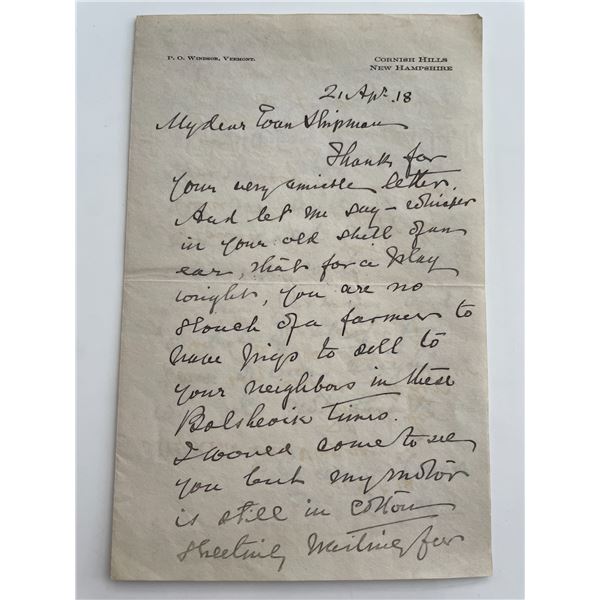 P. O. Windsor, Vermont.
Cornish Hills
New Hampshire
21 Apr. 18
My dear Evan Shipman
Thanks for
your very amiable letter.
And let me say – whisper
in your old shell of an
ear, that for a Play
wright, you are no
slouch of a farmer to
have pigs to sell to
your neighbors in these
Bolshevik Times.
I would come to see
you but my motor
is still in cotton
sheeting waiting for